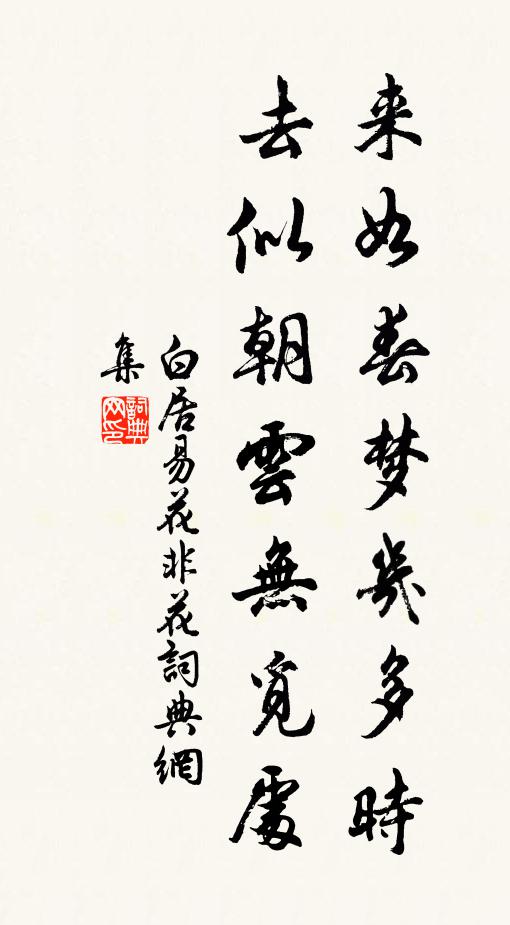 来如春梦幾多時
去似朝雲無覓處
白居易花非花詞典網
集
詞典
网印